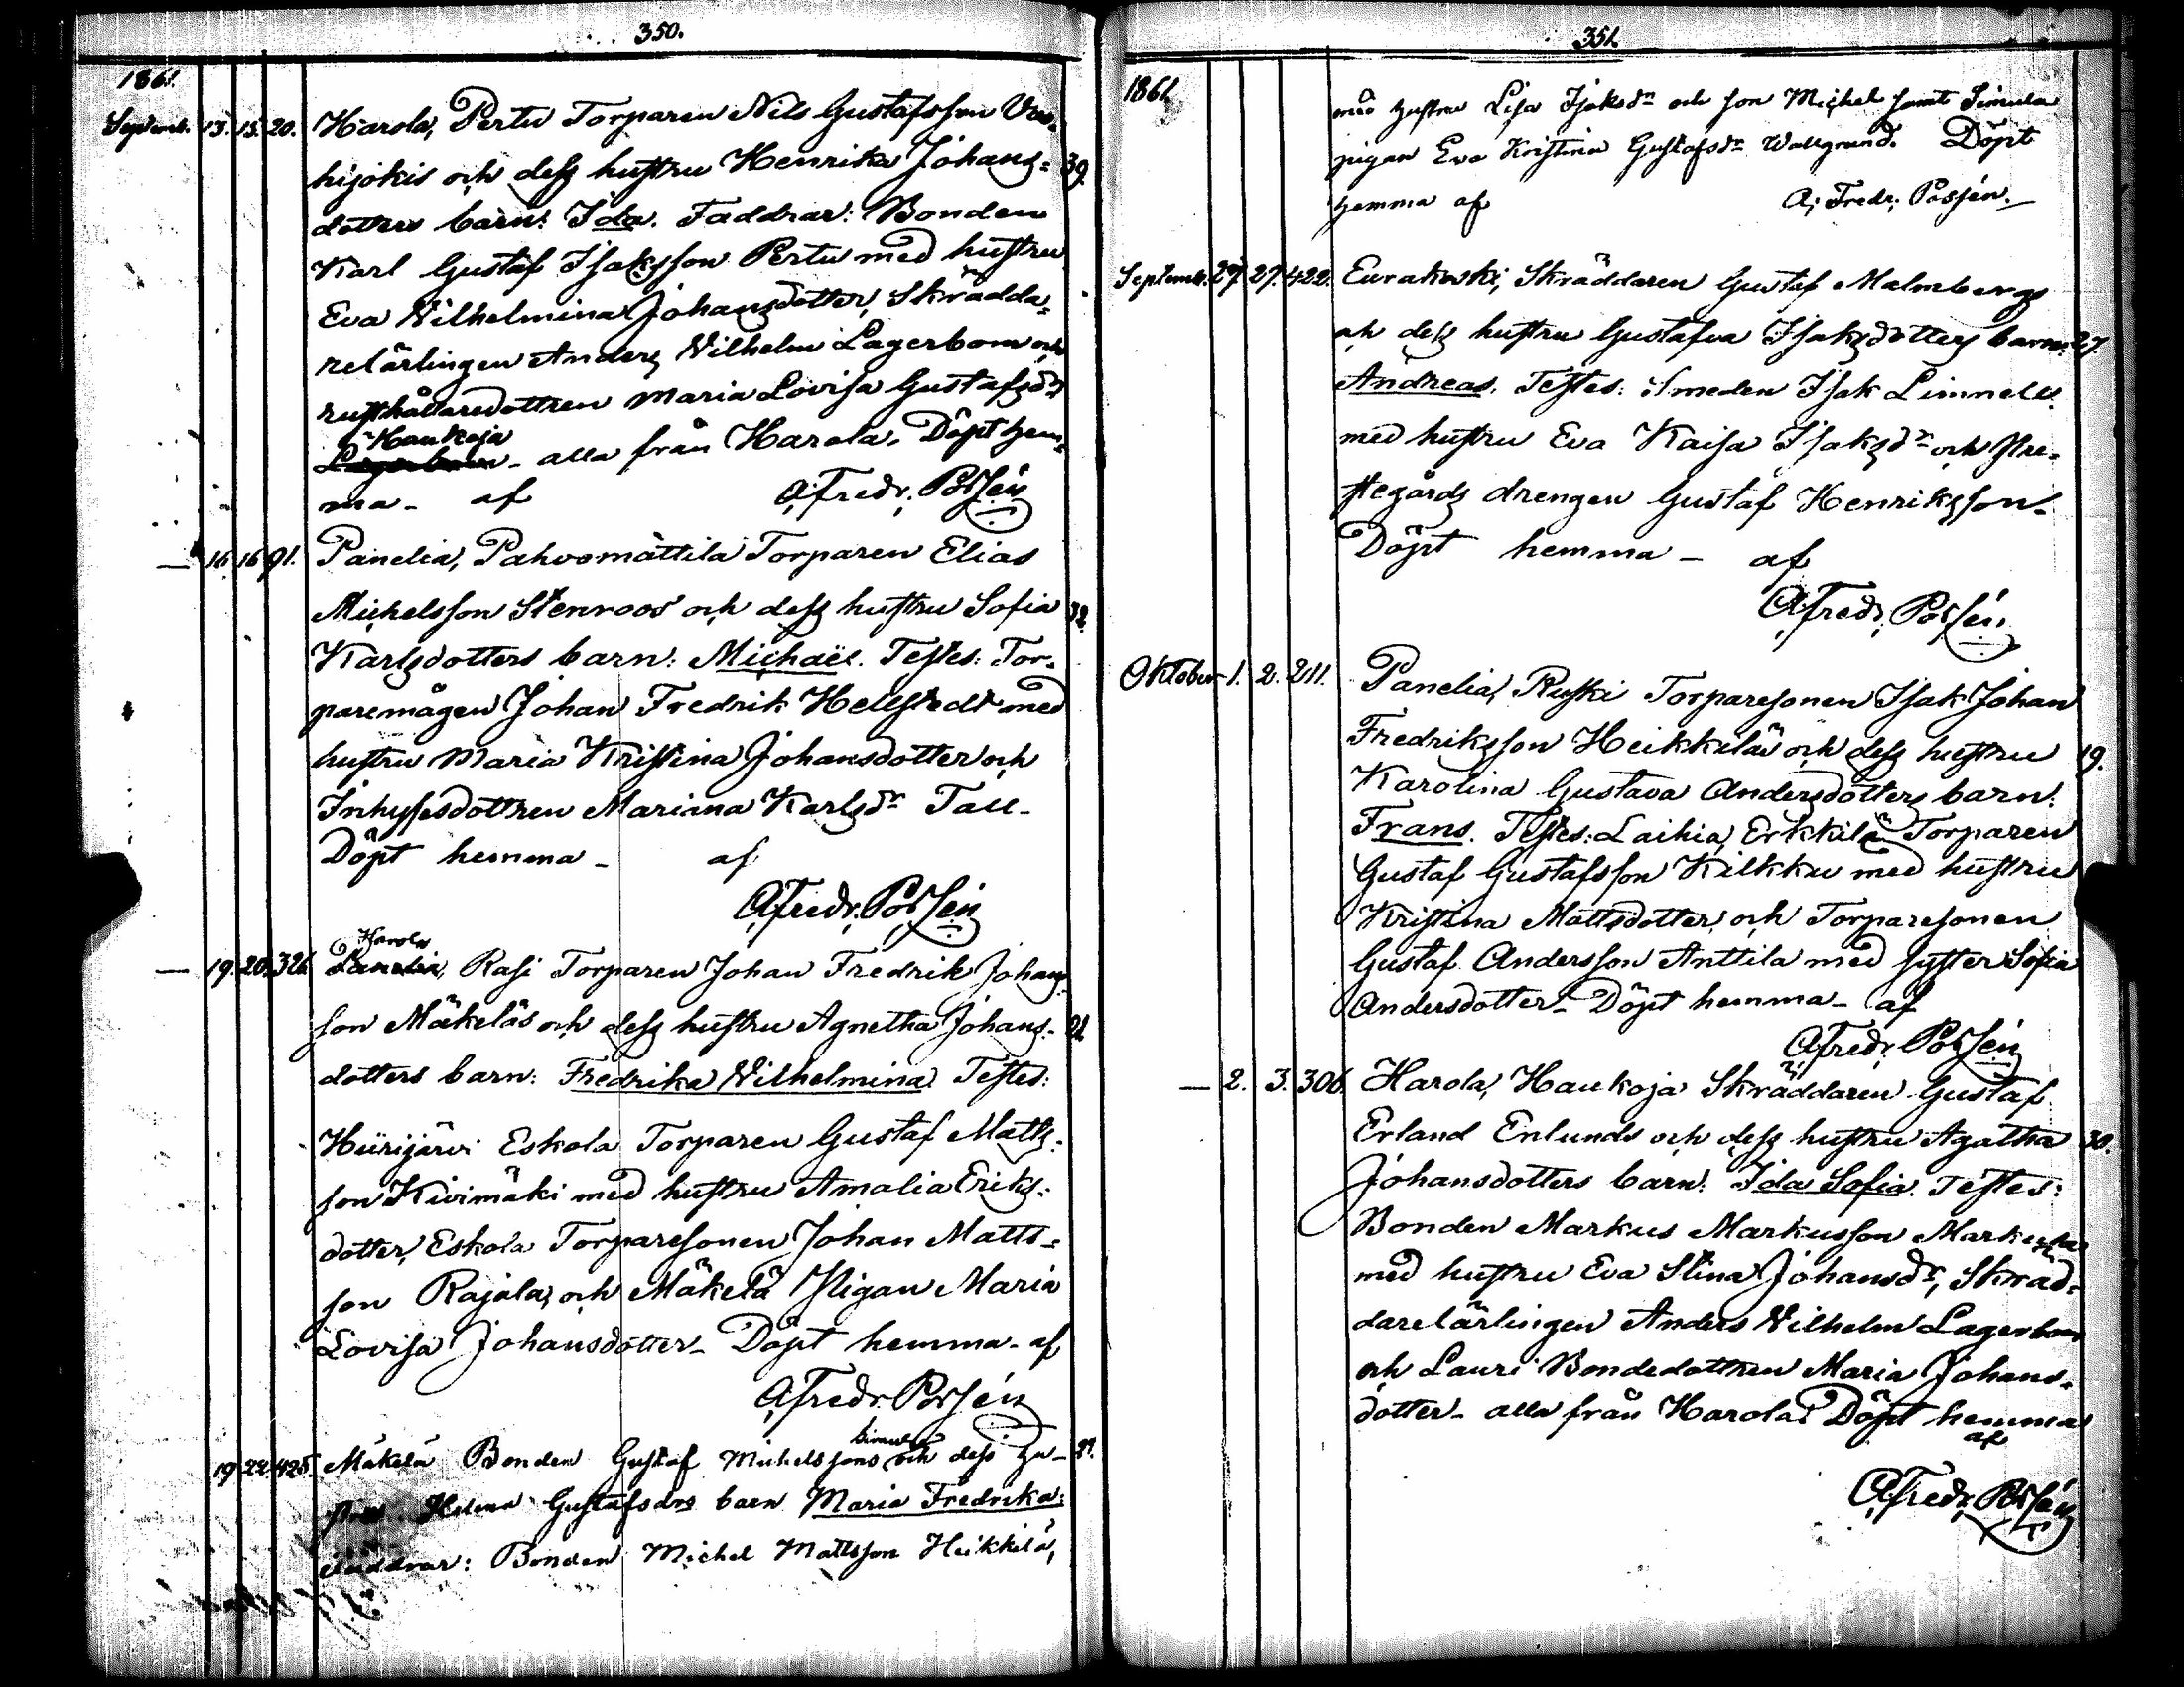 350.
1861.
Septemb. 13. 15. 20. Harola, Pertu Torparen Nils Gustafsson Va-
hijokis och dess hustru Henrika Johans= 39.
dotters barn: Ida. Faddrar: Bonden
Karl Gustaf Isaksson Pertu med hustru
Eva Wilhelmina Johansdotter, Skrädda=
relärlingen Anders Wilhelm Lagerbom och
rusthållaredottren Maria Lovisa Gustafsdr
Haukoja
Lagerbom - alla från Harola. Döpt hem-
ma - af A. Fredr. Possén
— 16. 16. 91. Panelia, Pahvomättila Torparen Elias
Michelsson Stenroos och dess hustru Sofia 32.
Karlsdotters barn: Michaël. Testes: Tor-
paremågen Johan Fredrik Hellstedt med
hustru Maria Kristina Johansdotter och
Inhysesdottren Marina Karlsdr Tall-
Döpt hemma - af
A. Fredr. Possén
Harola
— 19. 20. 326. Panelia, Rasi Torparen Johan Fredrik Johans-
son Mäkeläs och dess hustru Agnetha Johans- 21.
dotters barn: Fredrika Wilhelmina. Testes:
Hiirijärvi Eskola Torparen Gustaf Matts-
son Kivimäki med hustru Amalia Eriks-
dotter, Eskola Torparesonen Johan Matts-
son Rajala, och Mäkelä Pigan Maria
Lovisa Johansdotter - Döpt hemma - af
A. Fredr. Possén
Simula
19. 22. 425. Mäkelä Bonden Gustaf Michelssons och dess hu- 27.
stru Helena Gustafsdrs barn Maria Fredrika:
Faddrar: Bonden Michel Mattsson Heikkilä,
351.
1861.
med hustru Lisa Isaksdr och son Michel samt Simula
pigan Eva Kristina Gustafsdr Wallgrund. Döpt
hemma af A. Fredr. Possén.
Septemb. 27. 27. 422. Eurakoski, Skräddaren Gustaf Malmbergs
och dess hustru Gustafva Isaksdotters barn: 27.
Andreas. Testes: Smeden Isak Limnell
med hustru Eva Kaisa Isaksdr och Pre-
stegårds drengen Gustaf Henriksson-
Döpt hemma - af
A. Fredr. Possén
Oktober 1. 2. 211. Panelia, Ruski Torparesonen Isak Johan
Fredriksson Heikkiläs och dess hustru 19.
Karolina Gustava Andersdotters barn:
Frans. Testes: Laihia, Erkkilä Torparen
Gustaf Gustafsson Kilkku med hustru
Kristina Mattsdotter, och Torparesonen
Gustaf Andersson Anttila med syster Sofia
Andersdotter - Döpt hemma - af
A. Fredr. Possén
— 2. 3. 306. Harola, Haukoja Skräddaren Gustaf
Erland Enlunds och dess hustru Agatha 30.
Johansdotters barn: Ida Sofia. Testes:
Bonden Markus Markusson
med hustru Eva Stina Johansdr, Skräd-
darelärlingen Anders Wilhelm Lagerbom
och Lauri Bondedottren Maria Johans-
dotter - alla från Harola. Döpt hemma
af
A. Fredr. Possén